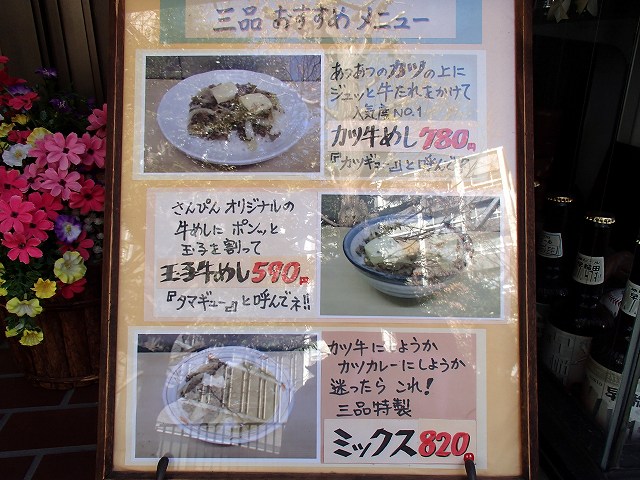 三品 おすすめ メニュー
あつあつのカツの上に
ジュッと牛たれをかけて
人気度NO.1
カツ牛めし 780円
『カツギュー』と呼んで
さんぴん オリジナルの
牛めしに ポンッと
玉子を割って
玉子牛めし 590円
『タマギュー』と呼んでネ!!
カツ牛にしようか
カツカレーにしようか
迷ったら これ!
三品特製
ミックス 820